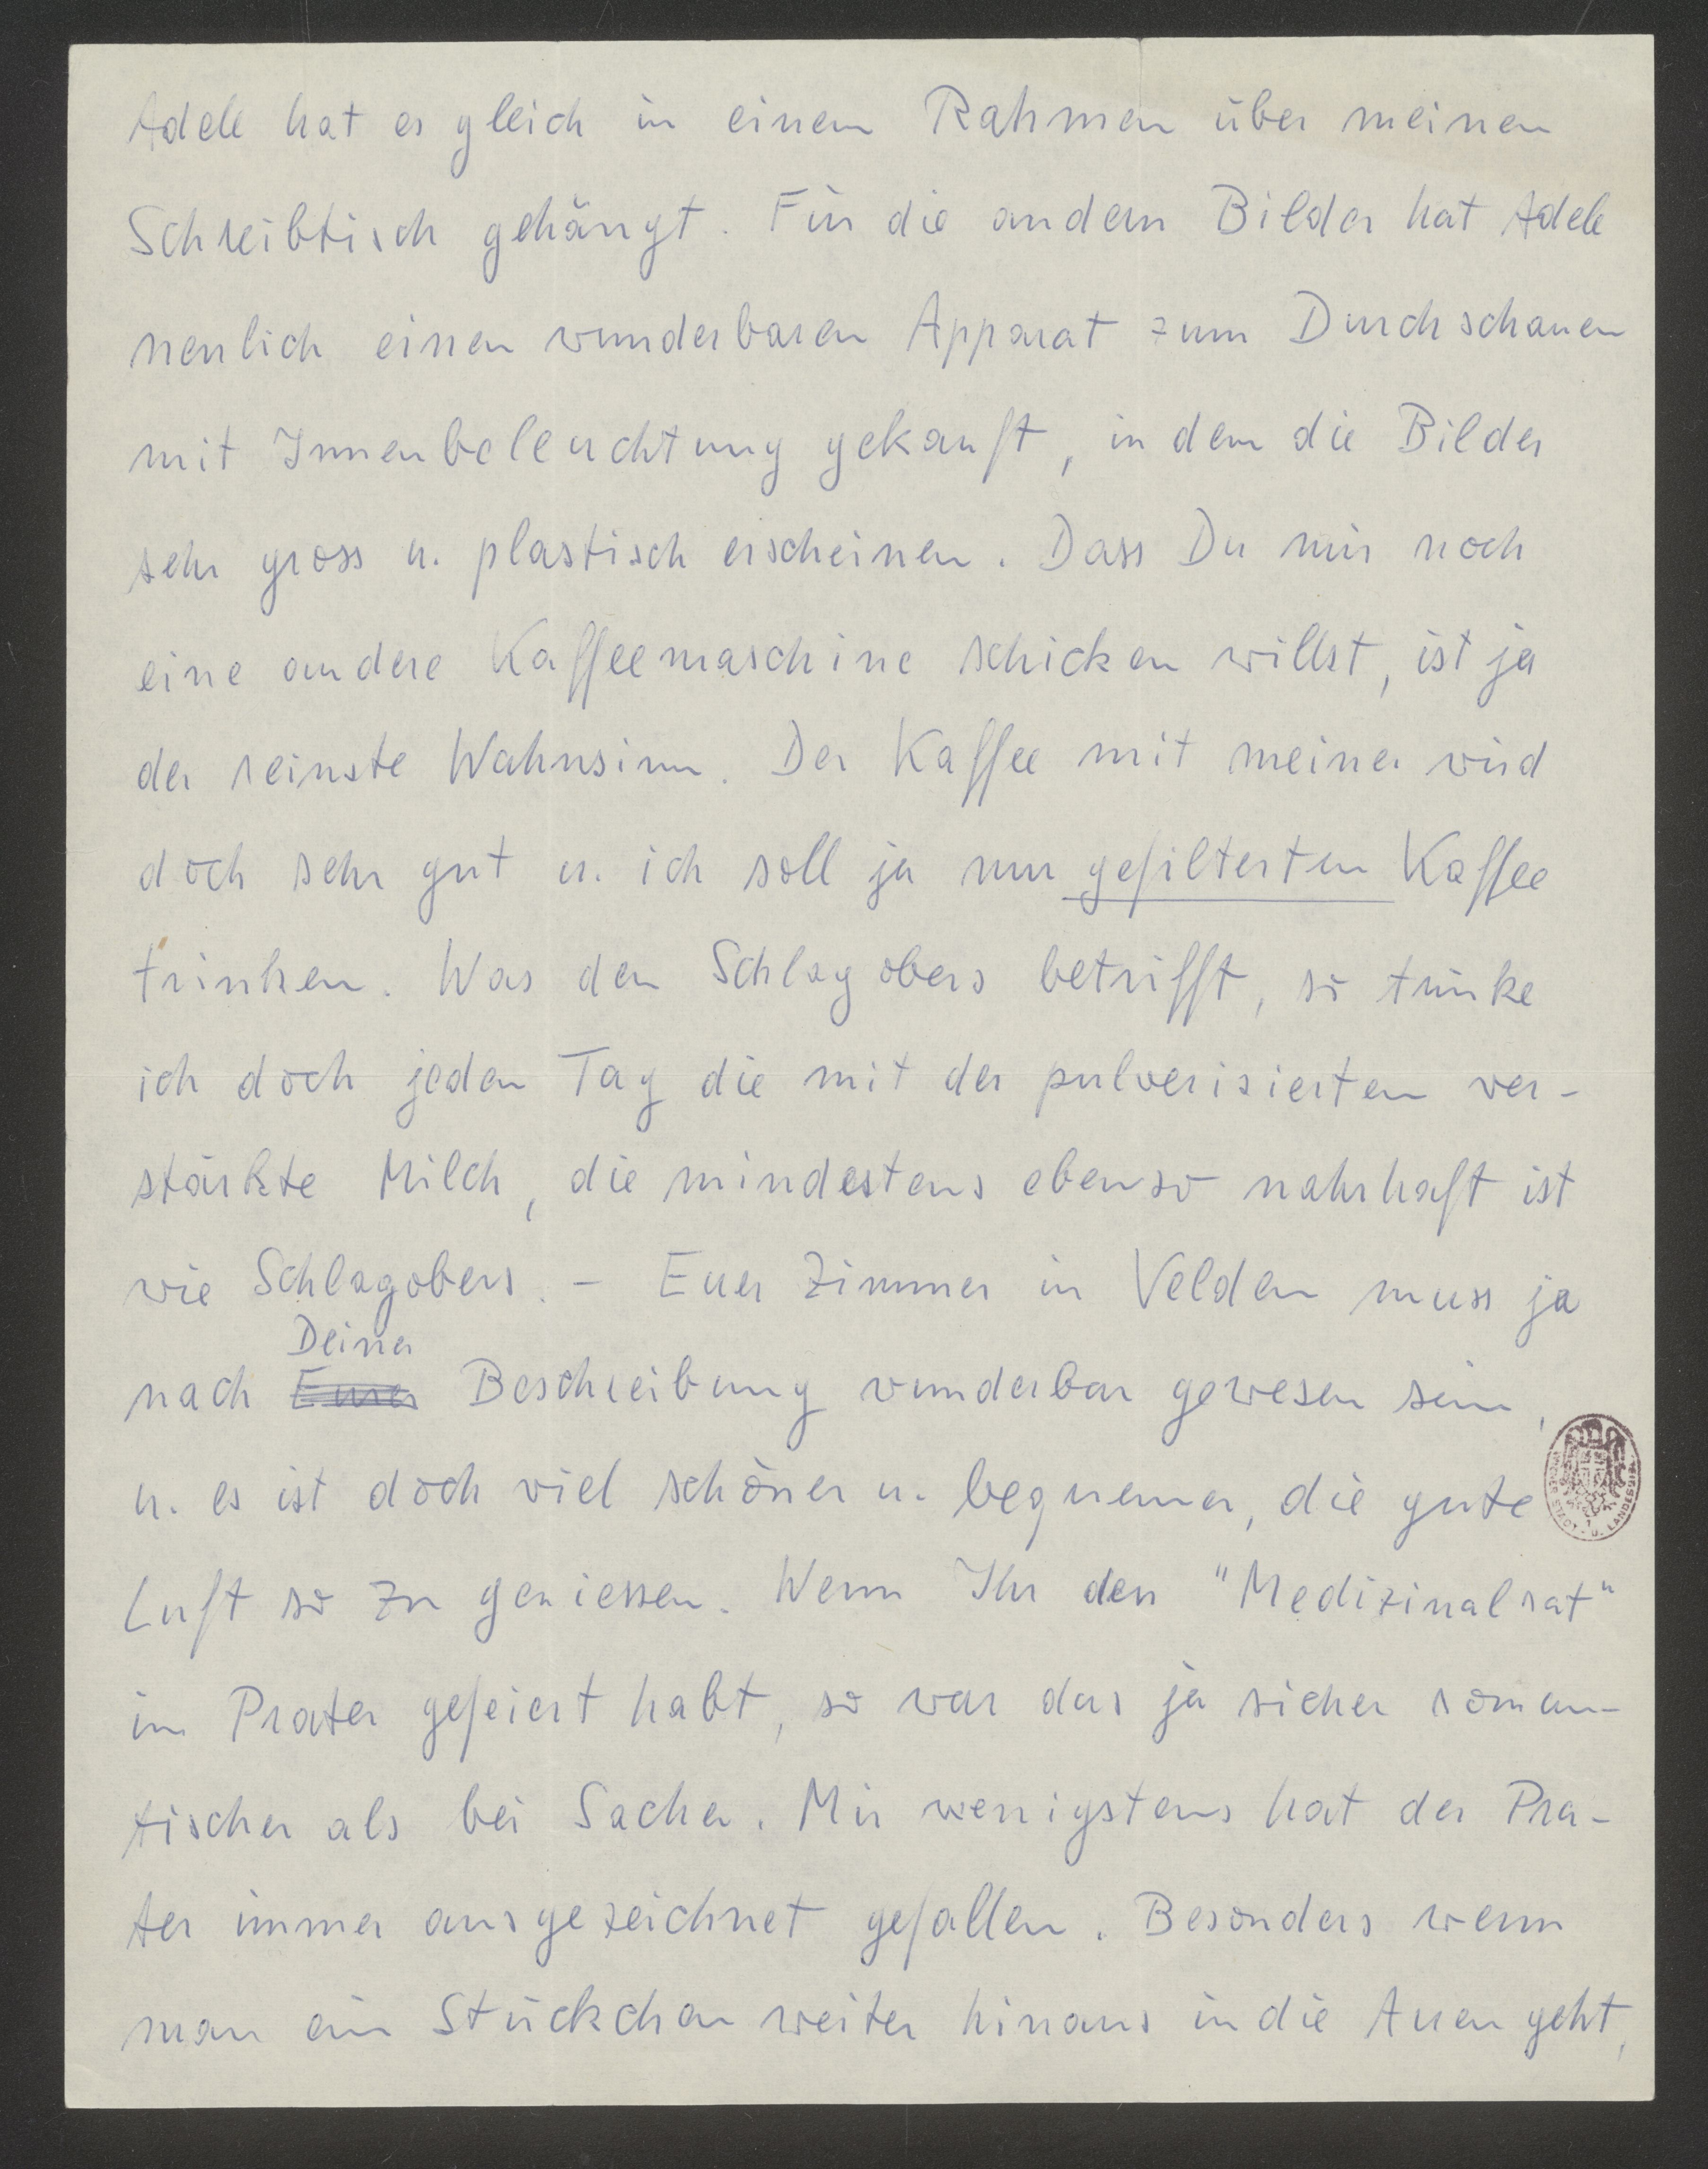 Adele hat es gleich in einem Rahmen über meinen
Schreibtisch gehängt. Für die andern Bilder hat Adele
neulich einen wunderbaren Apparat zum Durchschauen
mit Innenbeleuchtung gekauft, in dem die Bilder
sehr gross u. plastisch erscheinen. Dass Du mir noch
eine andere Kaffeemaschine schicken willst, ist ja
der reinste Wahnsinn. Der Kaffee mit meiner wird
doch sehr gut u. ich soll ja nur gefilterten Kaffee
trinken. Was den Schlagobers betrifft, so trinke
ich doch jeden Tag die mit der pulverisierten ver-
stärkte Milch, die mindestens ebenso nahrhaft ist
wie Schlagobers. – Euer Zimmer in Velden muss ja
Deiner
nach Eurer Beschreibung wunderbar gewesen sein,
u. es ist doch viel schöner u. bequemer, die gute
Luft so zu geniessen. Wenn Ihr den "Medizinalrat"
im Prater gefeiert habt, so war das ja sicher roman-
tischer als bei Sacher. Mir wenigstens hat der Pra-
ter immer ausgezeichnet gefallen. Besonders wenn
man ein Stückchen weiter hinaus in die Auen geht,